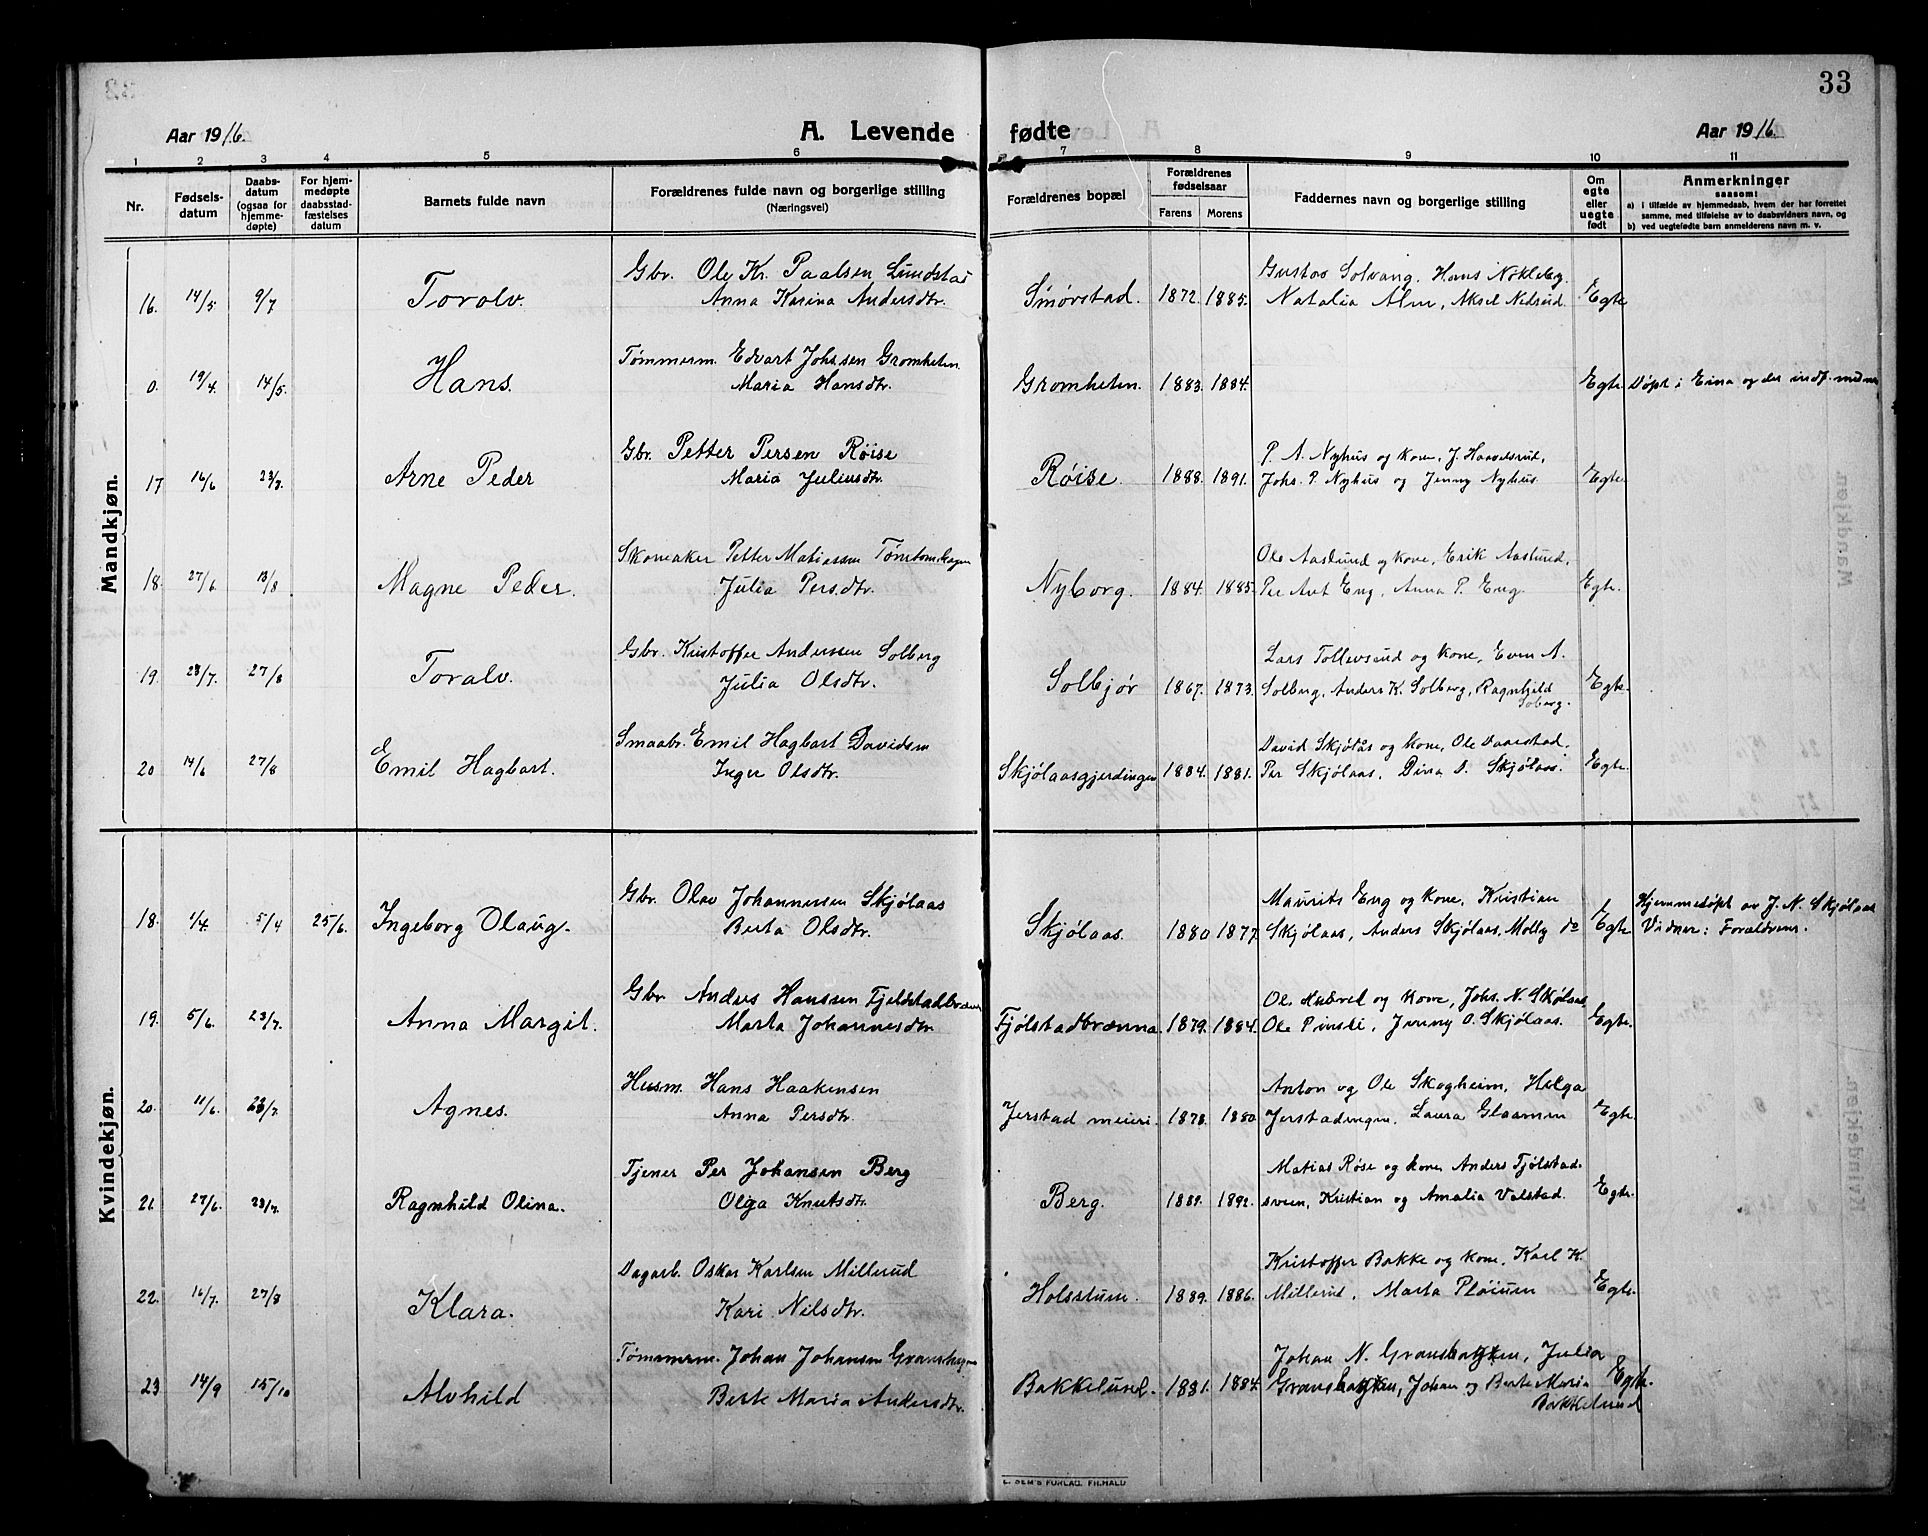 33
Aar 1916. A. Levende fødte Aar 1916.
1 2 3 4 5 6 7 8 9 10 11
Nr. Fødselsdatum Daabsdatum (ogsaa for hjemmedøpte) For hjemmedøpte daabsstadfæstelses datum Barnets fulde navn Forældrenes fulde navn og borgerlige stilling (Næringsvei) Forældrenes bopæl Forældrenes fødselsaar Farens Morens Faddernes navn og borgerlige stilling Om egte eller uegte født Anmerkninger saasom: a) i tilfælde av hjemmedaab, hvem der har forrettet samme, med tilføielse av to daabsvidners navn, og b) ved uegtefødte barn anmelderens navn m. v.
Mandkjøn.
Gbr. Ole Kr. Paalsen Lundstad Gustav Solvang, Hans Nøkleby
16. 14/5 9/7 Toralv. Anna Karina Andersdtr. Smørstad. 1872. 1885. Natalia Alm, Aksel Nedrud. Egte
Tømmerm. Edvart Johssen Gromheten.
0. 19/4. 14/5. Hans. Maria Hansdtr. Gromheten. 1883. 1884. Egte. Døpt i Eina og der indf. m. num
Gbr. Petter Persen Røise P. A. Nyhus og kone, J. Haavelsrud,
17 16/6 23/7. Arne Peder Maria Juliusdtr. Røise. 1888. 1891. Johs. P. Nyhus og Jenny Nyhus. Egte.
Skomaker Petter Matiessen Tømtomhagen Ole Aaslund og kone, Erik Aaslund,
18. 27/6. 13/8 Magne Peder. Julia Persdtr. Nyborg. 1884. 1885. Per Ant Eng, Anna P. Eng. Egte.
Gbr. Kristoffer Andersen Solberg Lars Tollevsrud og kone, Even A.
19. 23/7. 27/8 Toralv. Julia Olsdtr. Solbjør 1867. 1873. Solberg, Anders K. Solberg, Ragnhild Egte.
Soberg.
Smaabr. Emil Hagbart Davidsen David Skjølås og kone, Ole Daarstad,
20 14/6 27/8 Emil Hagbart. Inger Olsdtr. Skjølaasgjerdingen 1884. 1881. Per Skjølaas, Dina D. Skjølaas. Egte.
Kvindekjøn.
Gbr. Olav Johannessen Skjølaas Maurits Eng og kone, Kristian Hjemmedøpt av J. N. Skjølaas
18. 1/4. 5/4 25/6. Ingeborg Olaug. Berta Olsdtr. Skjølaas. 1880 1877. Skjølaas, Anders Skjølaas, Molly do Egte. Vidner: Forældrene.
Gbr. Anders Hanssen Fjeldstadbrænna Ole Hudvel og kone, Johs. N. Skølaas
19. 5/6. 23/7. Anna Margit. Marta Johannesdtr. Fjølstadbrænna. 1879. 1884. Ole Pinsli, Jenny O. Skjølaas. Egte.
Husm. Hans Haakensen Anton og Ole Skogheim, Helga
20. 11/6. 23/7. Agnes. Anna Persdtr. Jerstad meieri. 1878. 1880. Jerstadengen, Laura Glaamen Egte.
Tjener Per Johansen Berg Matias Røse og kone Anders Fjølstad-
21. 27/6. 23/7. Ragnhild Olina. Olga Knutsdtr. Berg. 1889. 1892. sveen, Kristian og Amalia Valstad. Egte.
Dagarb. Oskar Karlsen Millerud Kristoffer Bakke og kone, Karl K.
22. 16/7. 27/8 Klara. Kari Nilsdtr. Holsstuen. 1889. 1886. Millerud, Marta Pløiuen Egte.
Tømmerm. Johan Johansen Granshagen Johan N. Gransbakken, Julia
23 14/9 15/10 Alvhild Berte Maria Andersdtr. Bakkelund. 1881. 1884. Gransbakken, Johan og Berte Maria Egte.
Bakkelund
E. SEM'S FORLAG. FR.HALD